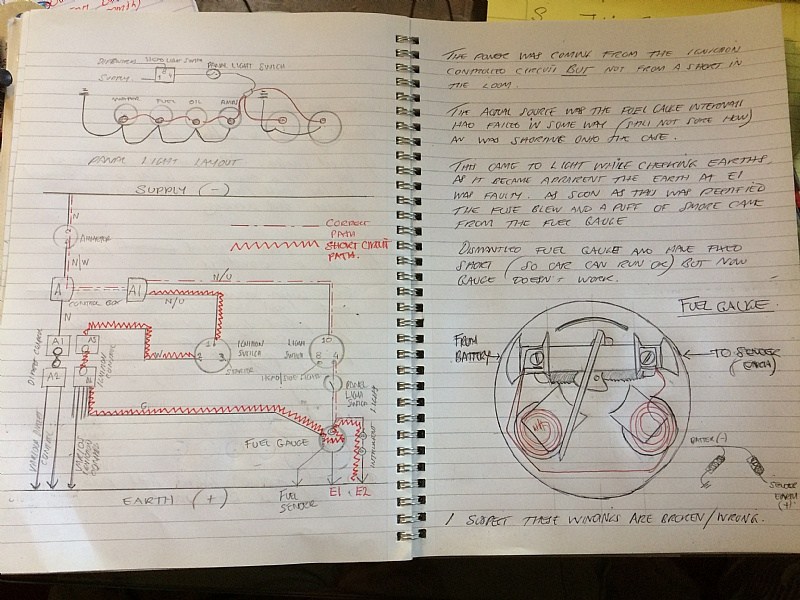 SUPPLY
PANEL LIGHT SWITCH
FUEL
OIL
AMPS
PANEL LIGHT LAYOUT
SUPPLY (-)
N
AMMETER
N/W
CORRECT
PATH
SHORT CIRCUIT
PATH.
N/U
A
CONTROL BOX
A1
N/U
N
A1
A2
IGNITION
SWITCH
LIGHT
SWITCH
10
8 4
PANEL
LIGHT
SWITCH
FUEL GAUGE
G
FUEL
SENDER
E1
E2
EARTH (+)
THE POWER WAS COMING FROM THE IGNITION
CONTROLLED CIRCUIT BUT NOT FROM A SHORT IN
THE LOOM.
THE ACTUAL SOURCE WAS THE FUEL GAUGE INTERNALS
HAD FAILED IN SOME WAY (STILL NOT SURE HOW)
AN WAS SHORTING ONTO THE CASE.
THIS CAME TO LIGHT WHILE CHECKING EARTHS,
AS IT BECAME APPARENT THE EARTH AT E1
WAS FAULTY. AS SOON AS THIS WAS RECTIFIED
THE FUSE BLEW AND A PUFF OF SMOKE CAME
FROM THE FUEL GAUGE
DISMANTLED FUEL GAUGE AND HAVE FIXED
SHORT (SO CAR CAN RUN OK) BUT NOW
GAUGE DOESN'T WORK.
FUEL GAUGE
FROM
BATTERY
TO SENDER
(EARTH)
(-)
SENDER
EARTH
(+)
I SUSPECT THESE WINDINGS ARE BROKEN/WRONG.